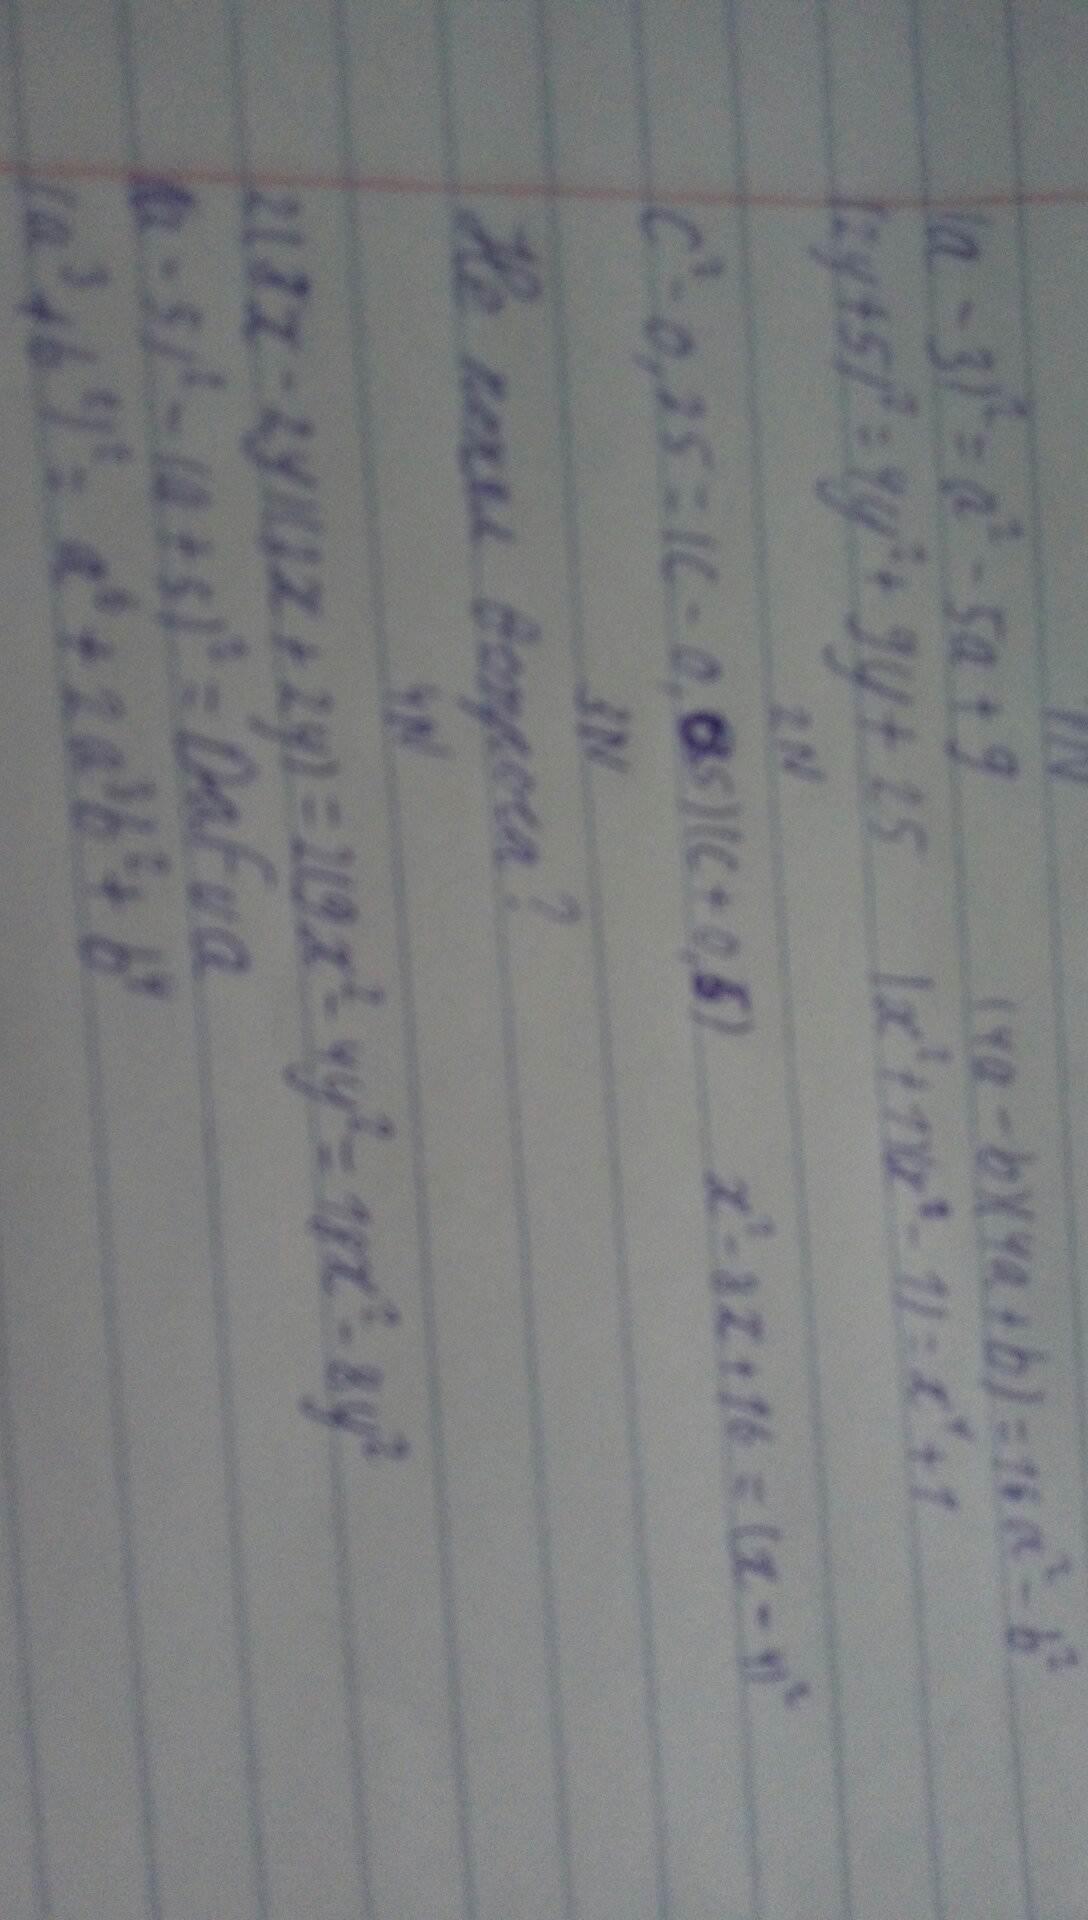 1N
(a - 3)² = a² - 5a + 9 (4a - b)(4a + b) = 16a² - b²
(2y + 5)² = 4y² + 9y + 25 (x² + 1)(x² - 1) = x⁴ + 1
2N
c² - 0,25 = (c - 0,5)(c + 0,5) x² - 8x + 16 = (x - 4)²
3N
Не понял вопроса?
4N
2(3x - 2y)(3x + 2y) = 2(9x² - 4y² = 18x² - 8y²
a - 5)² - (a + 5)² =
(a³ + b²)² = a⁶ + 2a³b² + b⁴